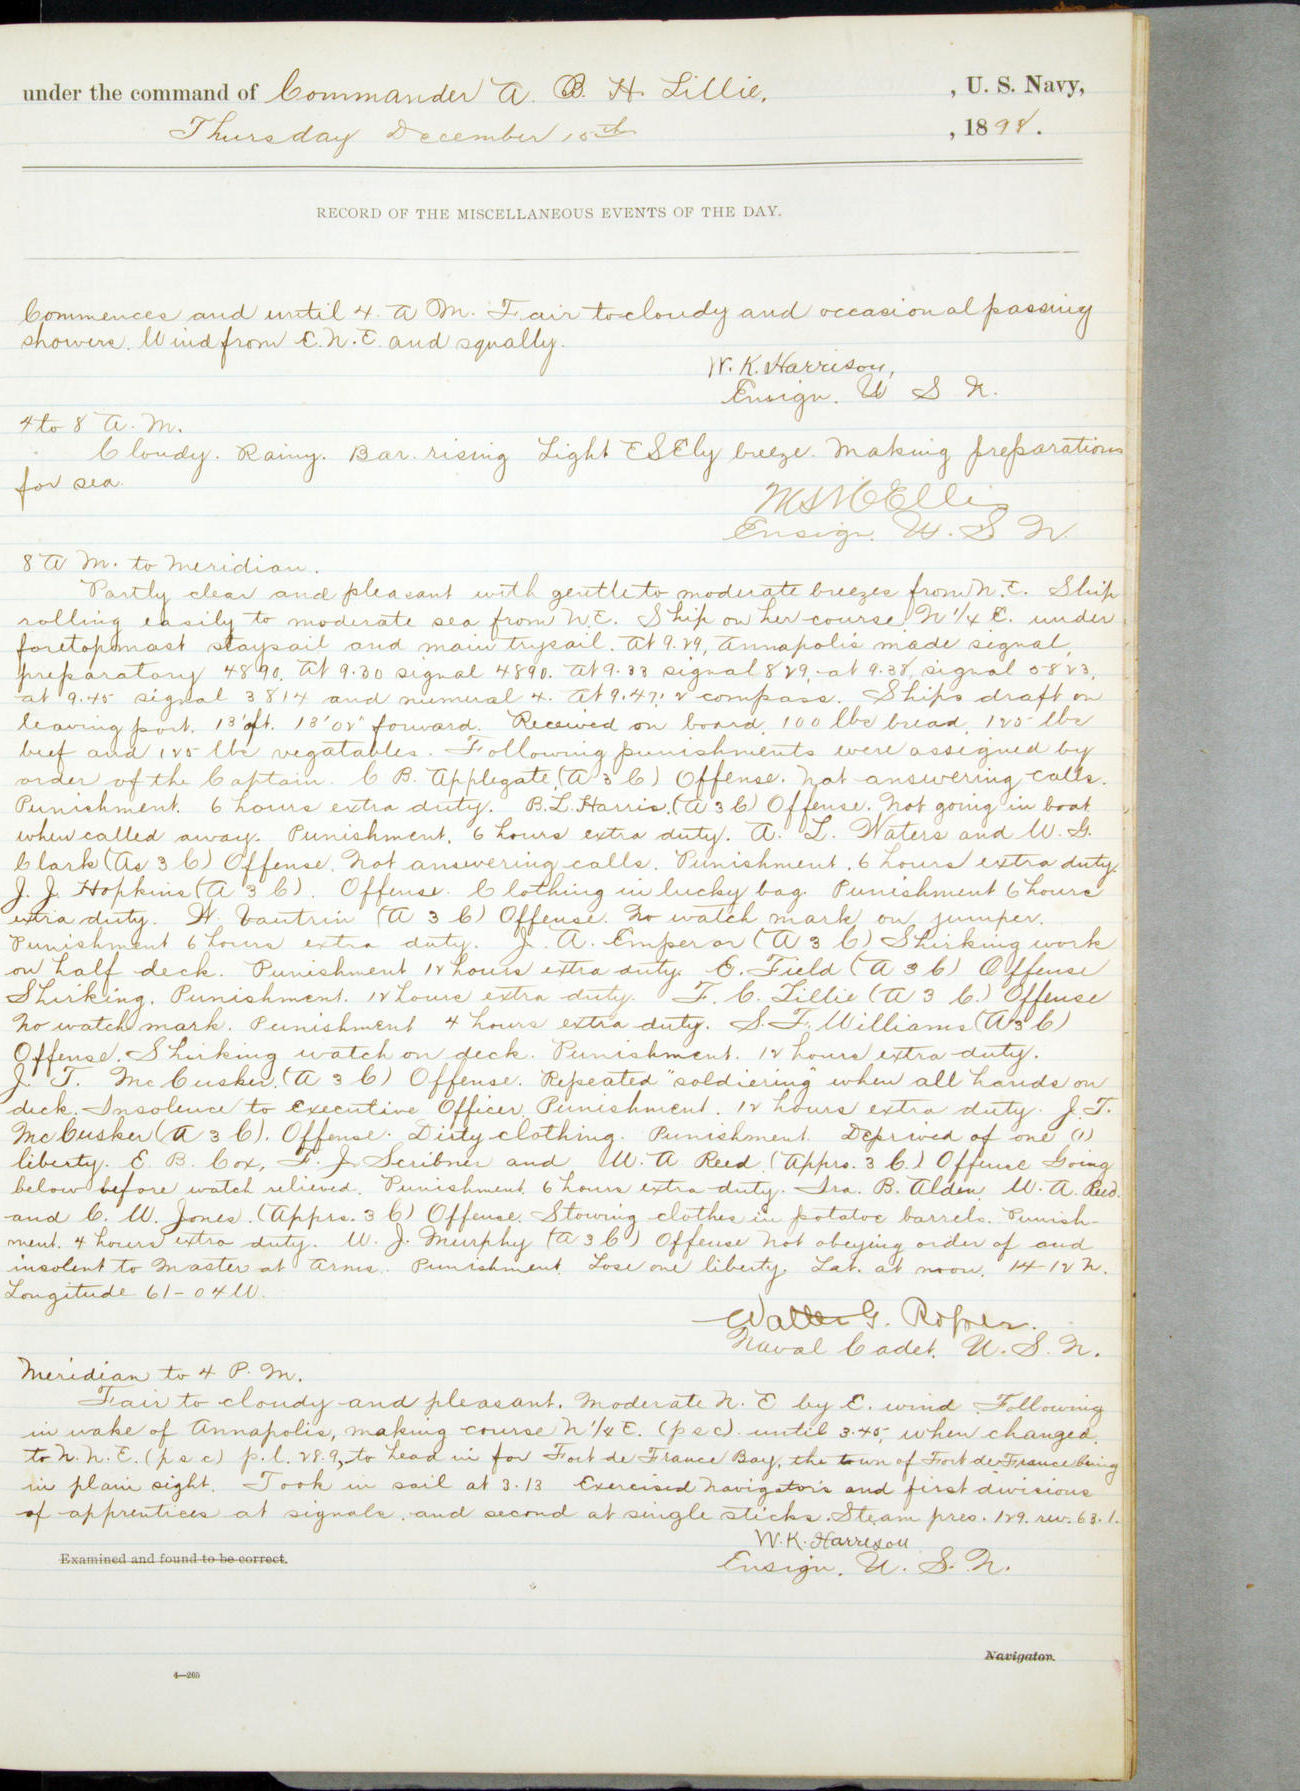 under the command of Commander A. B. H. Lillie, , U. S. Navy,
Thursday December 15th , 1898.
RECORD OF THE MISCELLANEOUS EVENTS OF THE DAY.
Commences and until 4 A M. Fair to cloudy and occasional passing
showers. Wind from E.N.E. and squally.
W. K. Harrison,
Ensign. U S N.
4 to 8 A. M.
Cloudy. Rainy. Bar. rising Light ESEly breeze. Making preparations
for sea.
Ellis
Ensign. U. S. N.
8 A M. to Meridian.
Partly clear and pleasant with gentle to moderate breezes from N.E. Ship
rolling easily to moderate sea from N.E. Ship on her course N 1/4 E. under
foretopmast staysail and main trysail. At 9.29, Annapolis made signal,
preparatory 4890, At 9.30 signal 4890. At 9.33 signal 829, at 9.38, signal 5823,
at 9.45 signal 3814 and numeral 4. At 9.47: 2 compass. Ships draft on
leaving port. 13' aft. 13'02" forward. Received on board, 100 lbs bread, 125 lbs
beef and 125 lbs vegatables. Following punishments were assigned by
order of the Captain. C B. Applegate, (A 3 C) Offense. Not answering calls.
Punishment. 6 hours extra duty. B.L. Harris. (A 3 C) Offense. Not going in boat
when called away. Punishment, 6 hours extra duty. A. L. Waters and W. G.
Clark (As 3 C) Offense. Not answering calls. Punishment. 6 hours extra duty.
J. J. Hopkins (A 3 C). Offense. Clothing in lucky bag. Punishment 6 hours
extra duty. W. Vautrin (A 3 C) Offense. No watch mark on jumper.
Punishment 6 hours extra duty. J. A. Emperor (A 3 C) Shirking work
on half deck. Punishment 12 hours extra duty. E. Field (A 3 C) Offense
Shirking. Punishment. 12 hours extra duty. F. C. Lillie (A 3 C.) Offense
No watch mark. Punishment 4 hours extra duty. S. F. Williams (A 3 C)
Offense. Shirking watch on deck. Punishment. 12 hours extra duty.
J. T. McCusker. (A 3 C) Offense. Repeated "soldiering" when all hands on
deck. Insolence to Executive Officer. Punishment. 12 hours extra duty. J. T.
McCusker (A 3 C). Offense. Dirty clothing. Punishment. Deprived of one (1)
liberty. E. B. Cox, F. J. Scribner and W. A Reed. (Apprs. 3 C.) Offense Going
below before watch relieved. Punishment. 6 hours extra duty. Ira. B. Alden, W. A. Reed.
and C. W. Jones. (Apprs. 3 C) Offense. Stowing clothes in potatoe barrels. Punish-
ment. 4 hours extra duty. W. J. Murphy (A 3 C) Offense Not obeying order of and
insolent to Master at Arms. Punishment. Lose one liberty. Lat. at noon. 14-12 N.
Longitude 61-04 W.
Walter G. Roper.
Naval Cadet, U. S. N.
Meridian to 4 P. M.
Fair to cloudy and pleasant. Moderate N. E by E. wind. Following
in wake of Annapolis, making course N 1/4 E. (p s c) until 3.45, when changed
to N. N. E. (p s c) p. l. 28.9, to head in for Fort de France Bay, the town of Fort de France being
in plain sight. Took in sail at 3.13 Exercised Navigator's and first divisions
of apprentices at signals, and second at single sticks. Steam pres. 129. rev. 63.1.
W. K. Harrison
Ensign. U. S. N.
Examined and found to be correct.
Navigator.
4—265